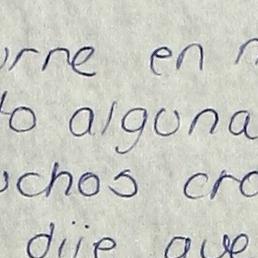 urne en
to alguna
uchos cro
dije que